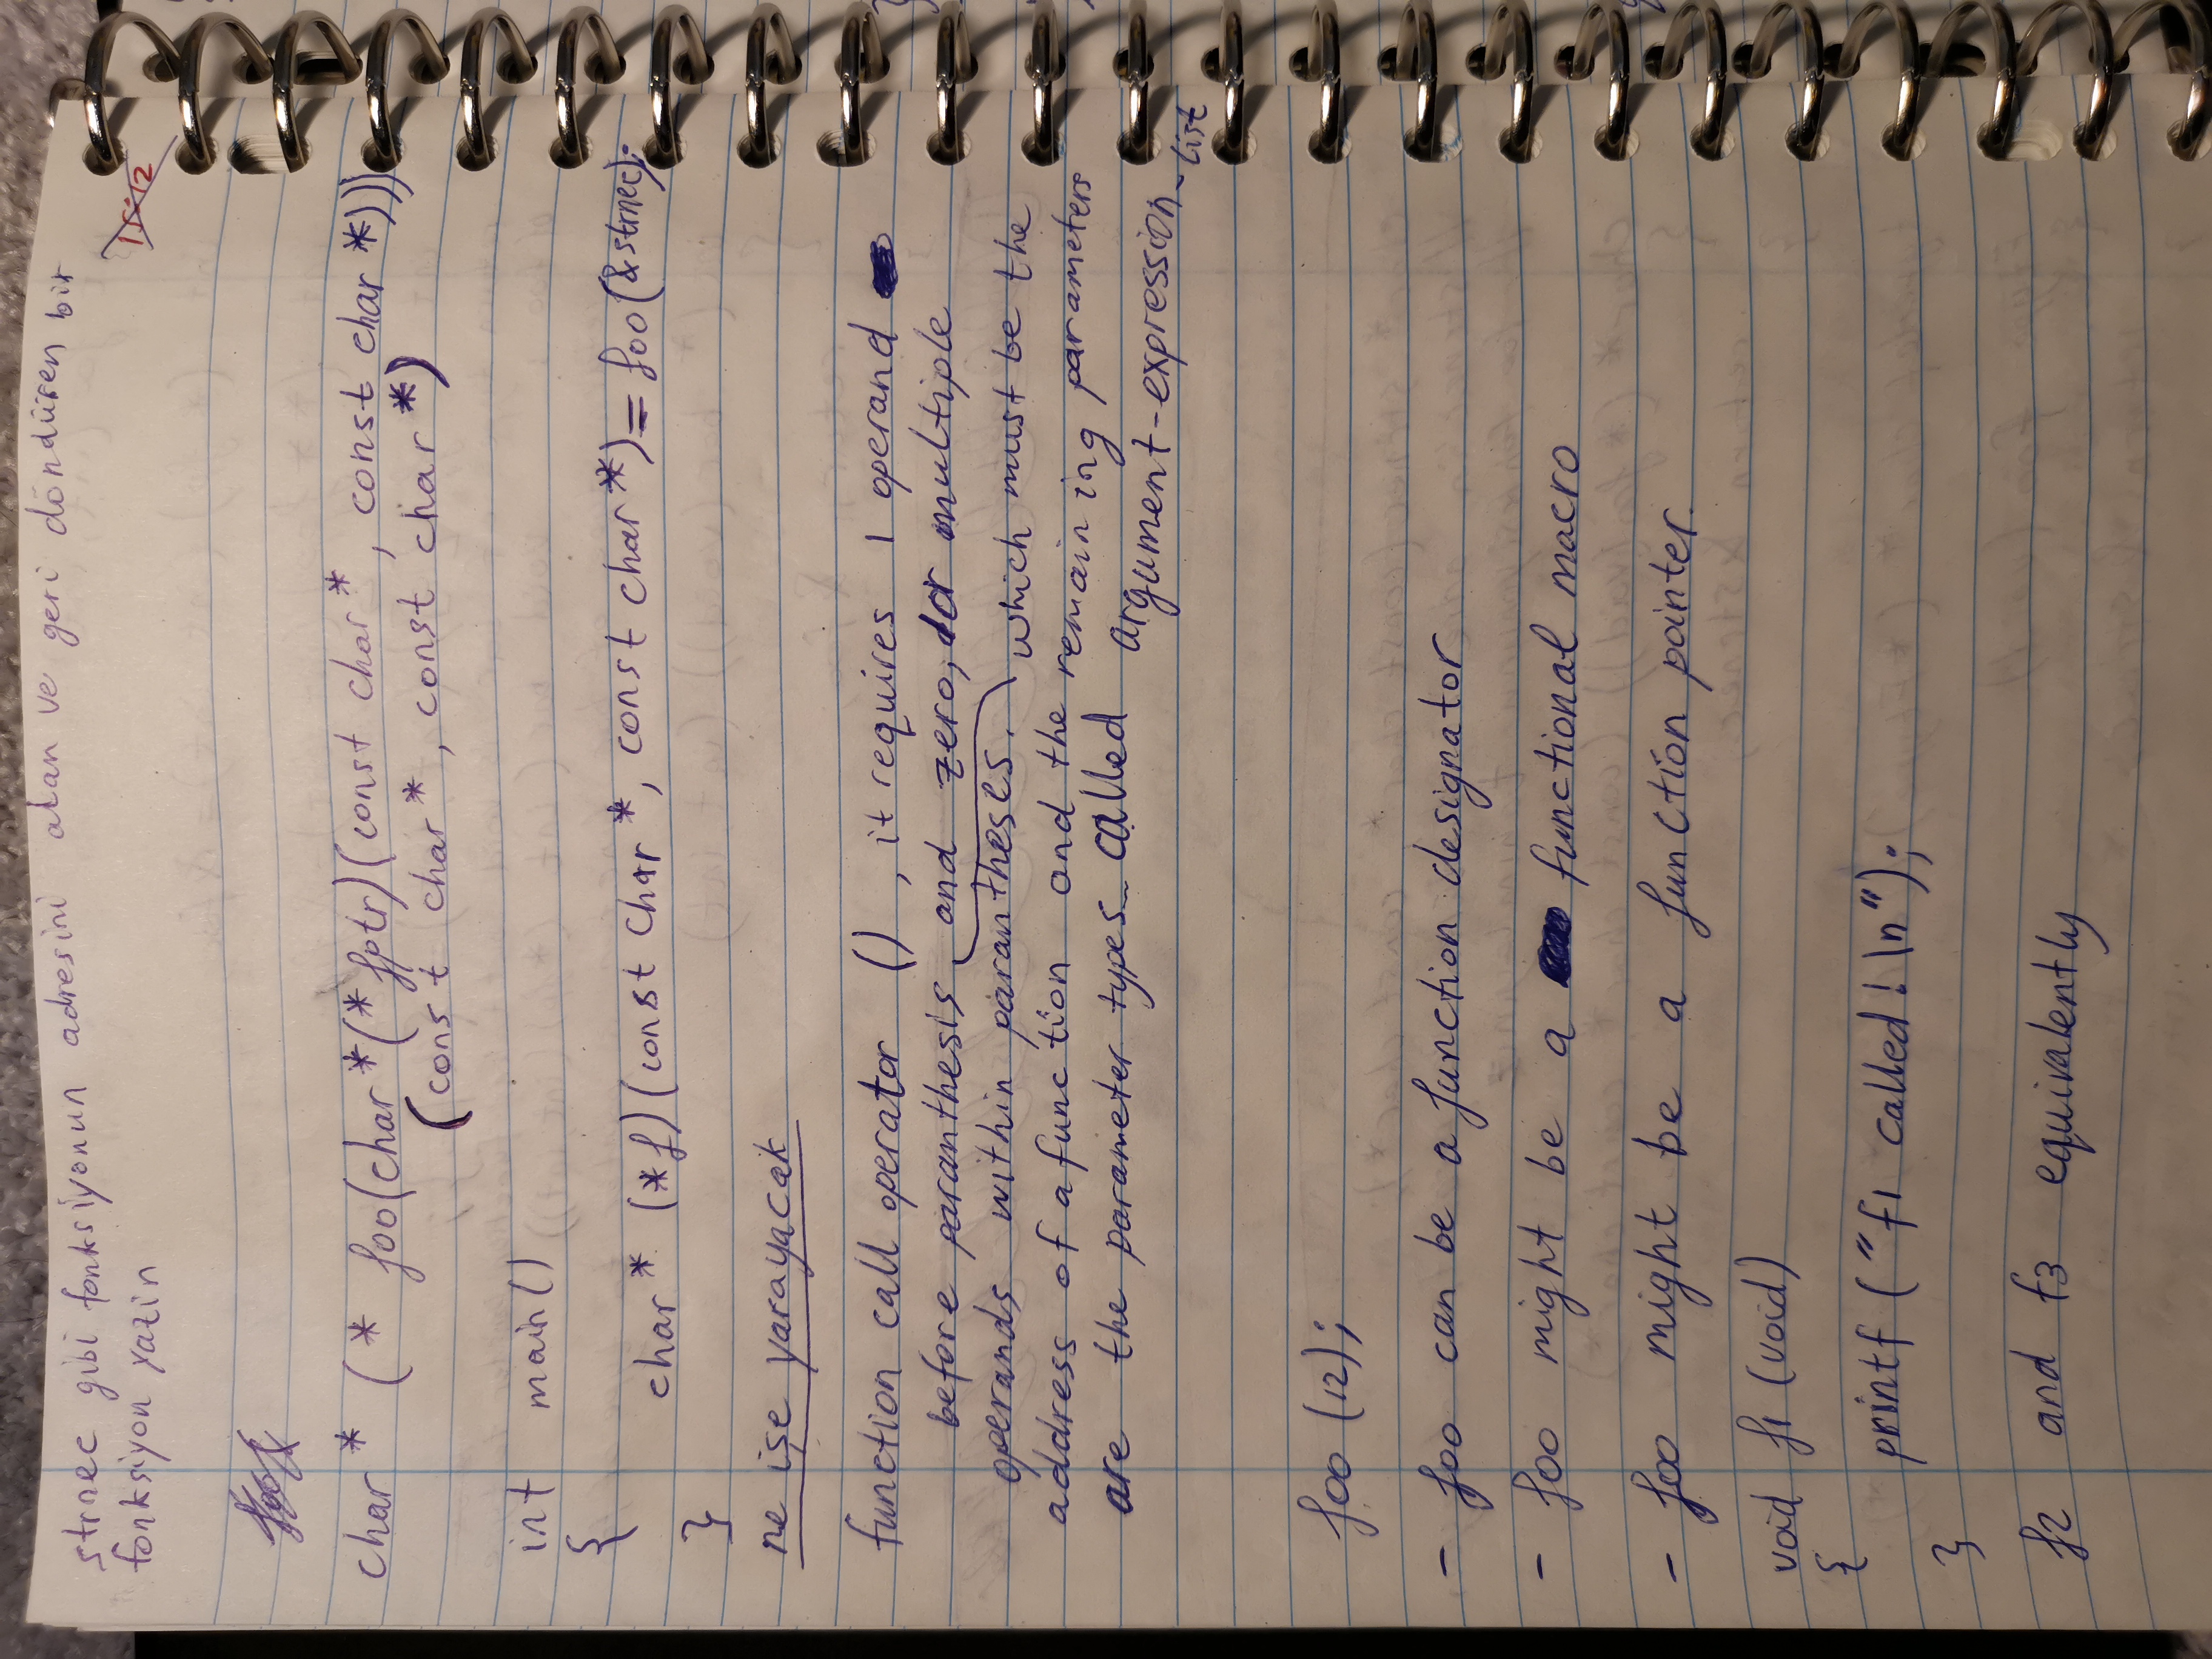 strnec gibi fonksiyonun adresini alan ve geri döndüren bir
fonksiyon yazin
15:12
char * ( * foo(char*(*fptr)(const char*, const char*)))
(const char*, const char*)
int main()
{
char* (*f)(const char*, const char*)= foo(&strnec);
}
ne işe yarayacak
function call operator () , it requires 1 operand
before paranthesis and zero, or multiple
operands within parantheses. which must be the
address of a function and the remaining parameters
are the parameter types called argument-expression-list
foo (12);
- foo can be a function designator
- foo might be a functional macro
- foo might be a function pointer.
void f1 (void)
{
printf ("f1 called! \n");
}
f2 and f3 equivalently